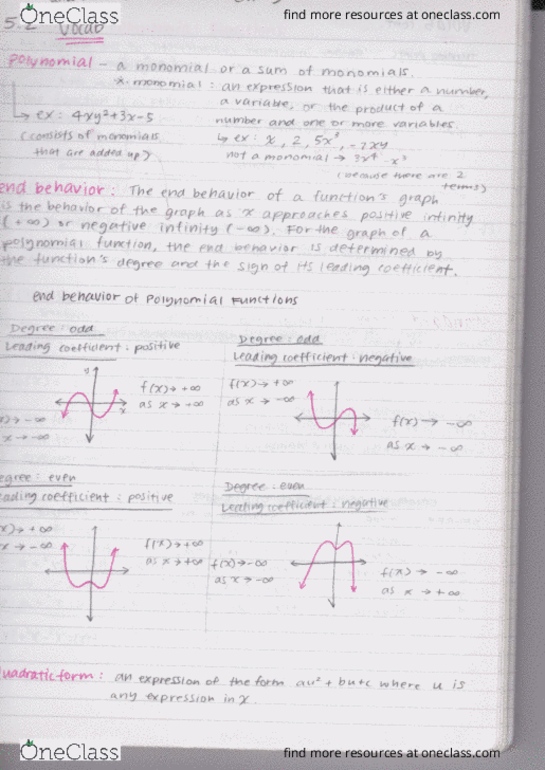 OneClass
find more resources at oneclass.com
5.2 Vocab
Polynomial - a monomial or a sum of monomials.
* monomial : an expression that is either a number,
a variable, or the product of a
number and one or more variables.
→ ex: 4xy²+3x-5
(consists of monomials
that are added up)
↳ ex: x, 2, 5x³, -7xy
not a monomial → 3x⁴ - x³
(because there are 2
terms)
end behavior: The end behavior of a function's graph
is the behavior of the graph as x approaches positive infinity
(+∞) or negative infinity (-∞). For the graph of a
polynomial function, the end behavior is determined by
the function's degree and the sign of its leading coefficient.
end behavior of Polynomial Functions
Degree: odd
Leading coefficient: positive
f(x)→ +∞
as x → -∞
x)→ -∞
x → -∞
x
Degree: odd
Leading coefficient: negative
f(x)→ +∞
as x → -∞
f(x) → -∞
as x → -∞
egree: even
eading coefficient: positive
x)→ +∞
x → -∞
f(x)→+∞
as x→+∞
Degree: even
Leading coefficient: negative
f(x)→-∞
as x→-∞
f(x) → -∞
as x → +∞
uadratic form: an expression of the form au² + bu+c where u is
any expression in x.
OneClass
find more resources at oneclass.com